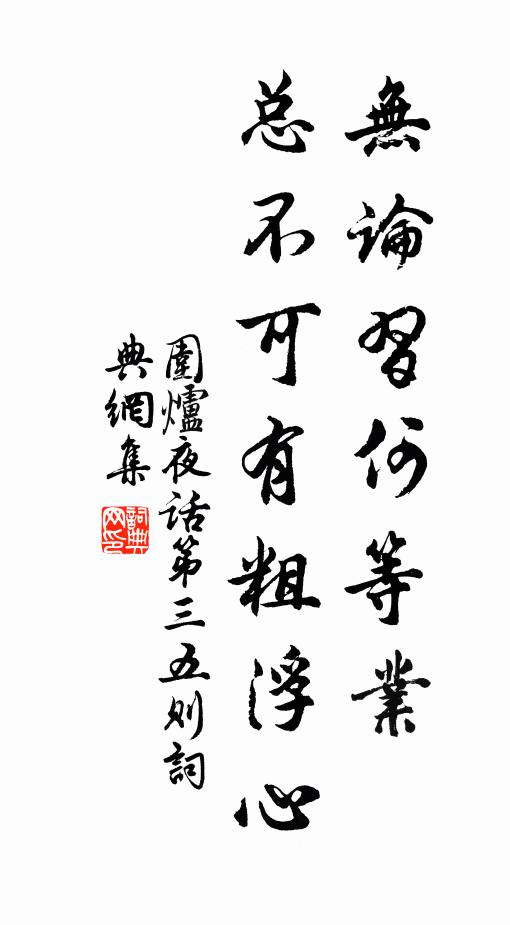 無論習何等業
总不可有粗浮心
圍爐夜话第三五则詞
典網集
詞典网印